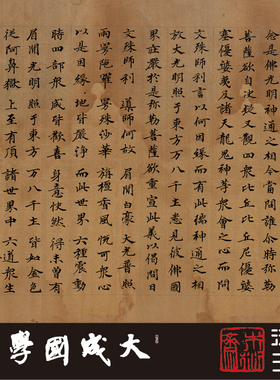 念是佛光明神通之相今當問誰爾時彌
菩薩欲自決疑又觀四眾比丘比丘尼優婆
塞優婆夷及諸天龍鬼神等眾會之心而問
文殊師利言以何因緣而有此瑞神通之相
放大光明照于東方萬八千土悉見彼佛國
界莊嚴於是彌勒菩薩欲重宣此義以偈問曰
文殊師利 導師何故 眉間白毫 大光普照
雨曼陀羅 曼殊沙華 栴檀香風 悅可眾心
以是因緣 地皆嚴淨 而此世界 六種震動
時四部眾 咸皆歡喜 身意快然 得未曾有
眉間光明 照于東方 萬八千土 皆如金色
從阿鼻獄 上至有頂 諸世界中 六道眾生
大成國學